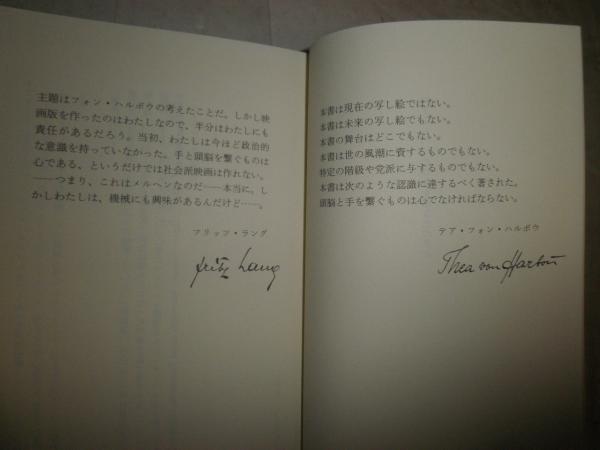 主題はフォン・ハルボウの考えたことだ。しかし映
画版を作ったのはわたしなので、半分はわたしにも
責任があるだろう。当初、わたしは今ほど政治的
な意識を持っていなかった。手と頭脳を繋ぐものは
心である、というだけでは社会派映画は作れない。
──つまり、これはメルヘンなのだ──本当に。し
かしわたしは、機械にも興味があるんだけど──。
フリッツ・ラング
Fritz Lang
本書は現在の写し絵ではない。
本書は未来の写し絵でもない。
本書の舞台はどこでもない。
本書は世の風潮に資するものでもない。
特定の階級や党派に与するものでもない。
本書は次のような認識に達するべく著された。
頭脳と手を繋ぐものは心でなければならない。
テア・フォン・ハルボウ
Thea von Harbou